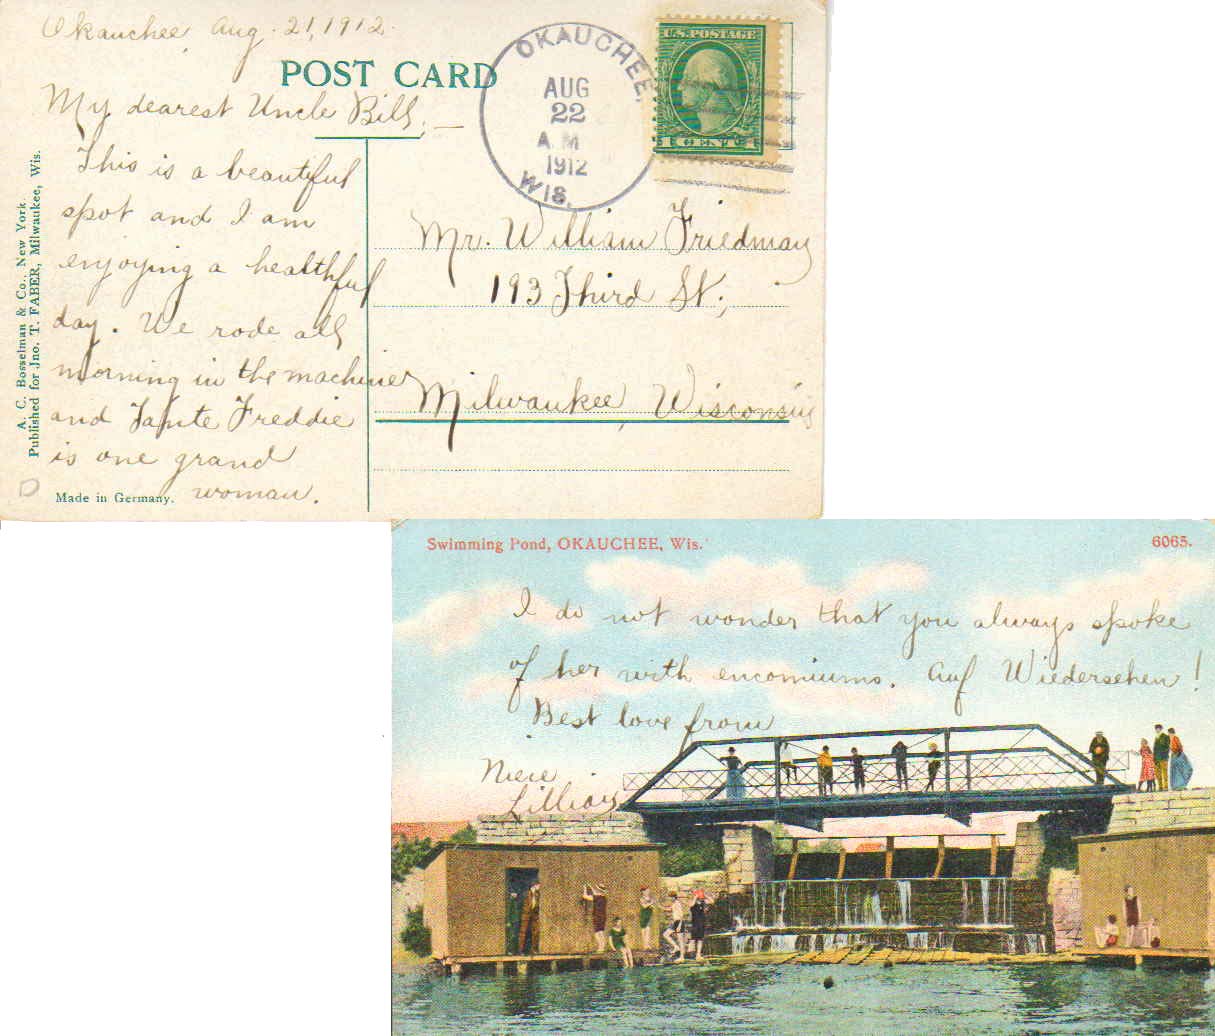 Okauchee, Aug. 21, 1912.
POST CARD
My dearest Uncle Bill, —
This is a beautiful
spot and I am
enjoying a healthful
day. We rode all
morning in the machine
and Tante Freddie
is one grand
woman.
Made in Germany.
A. C. Bosselman & Co., New York.
Published for Jno. T. FABER, Milwaukee, Wis.
OKAUCHEE,
AUG
22
A.M
1912
WIS.
U.S. POSTAGE
1 CENT 1
Mr. William Friedman
193 Third St.,
Milwaukee, Wisconsin
Swimming Pond, OKAUCHEE, Wis.
6065.
I do not wonder that you always spoke
of her with encomiums. Auf Wiedersehen!
Best love from
Niece
Lillian